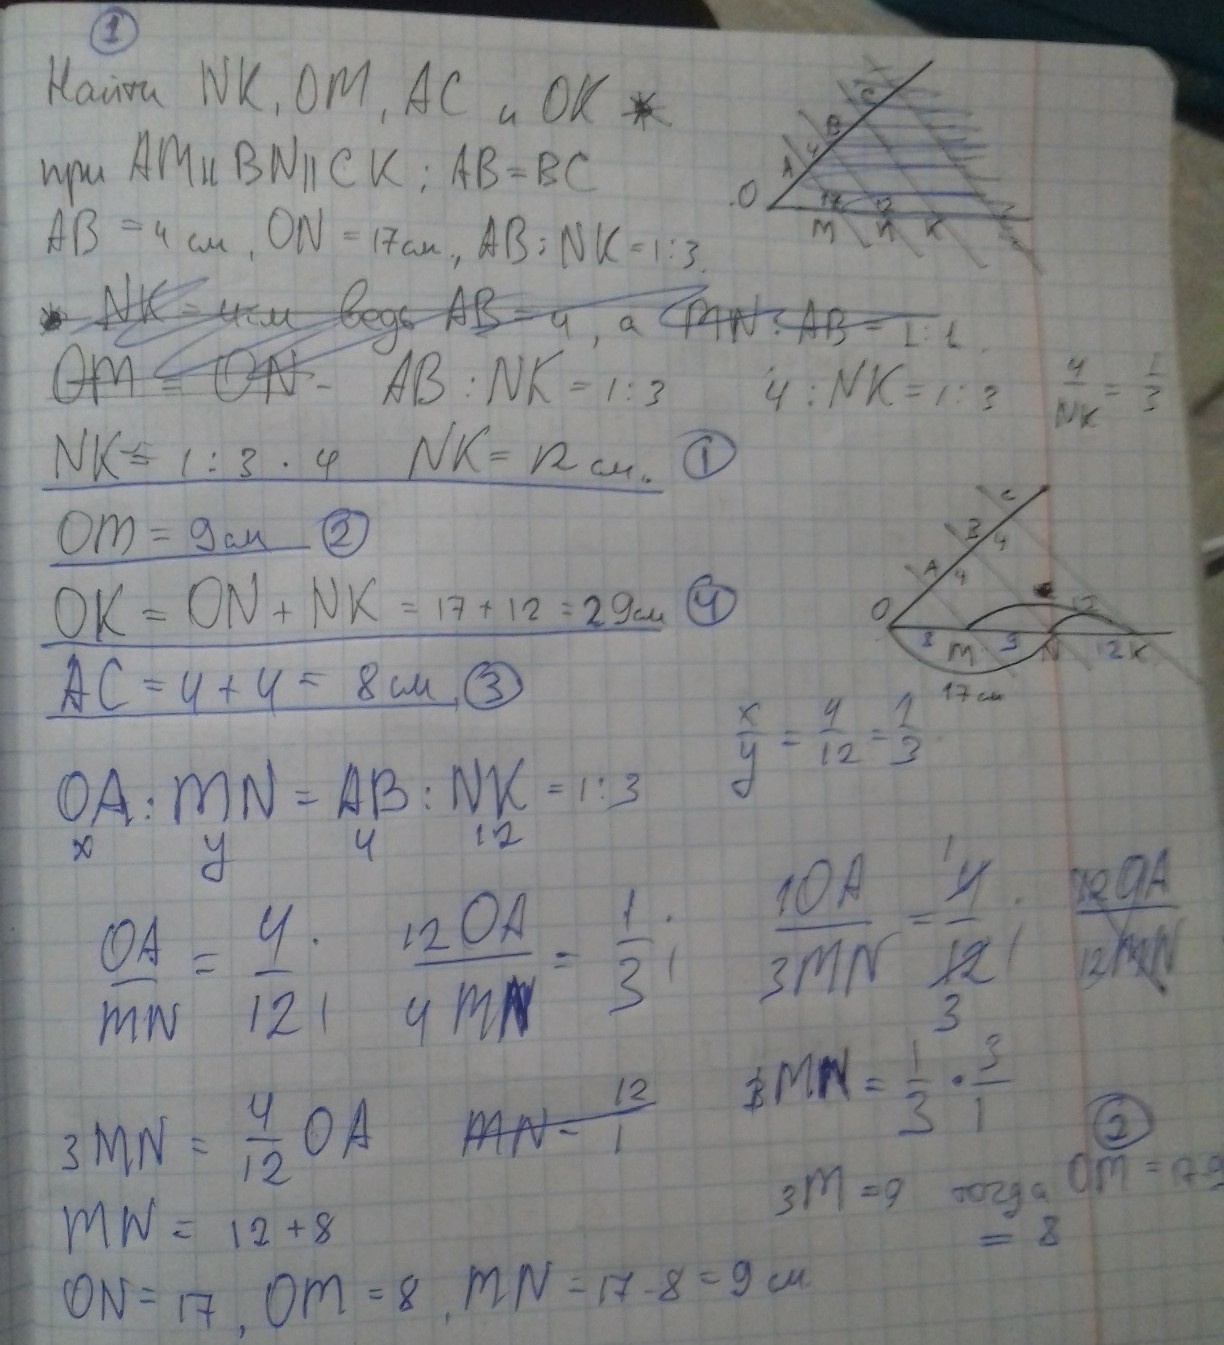 1
Найти NK, OM, AC и OK *
при AM || BN || CK; AB = BC
AB = 4 см, ON = 17 см, AB : NK = 1:3.
O A B C 4 M N K
* NK = 4 см ведь AB = 4, а MN : AB = 1:1.
OM = ON - AB : NK = 1:3 4 : NK = 1:3 4/NK = 1/3
NK = 1:3 · 4 NK = 12 см. 1
OM = 9 см 2
OK = ON + NK = 17 + 12 = 29 см 4
AC = 4 + 4 = 8 см, 3
O A B C 4 4 8 M 9 N 12 K 12
17 см
x/y = 4/12 = 1/3.
OA : MN = AB : NK = 1:3
x y 4 12
OA/MN = 4/12; 12OA/4MN = 1/3; 1OA/3MN = 4/12; 1 3 12OA/12MN
3MN = 4/12 OA MN - 12/1 MN = 1/3 · 3/1
2
3M = 9 тогда OM = 17
= 8
MN = 12 + 8
ON = 17, OM = 8, MN = 17 - 8 = 9 см